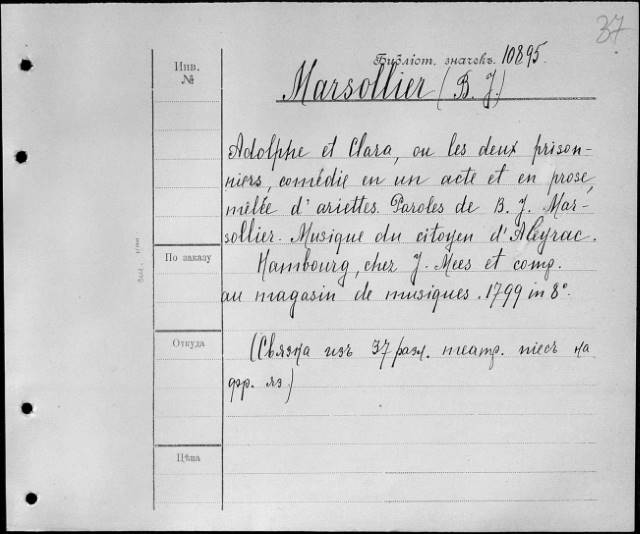 37
Инв.
№
Библіот. значекъ. 10895.
Marsollier (B. J.)
Adolphe et Clara, ou les deux prison-
niers, comédie en un acte et en prose,
mêlée d'ariettes. Paroles de B. J. Mar-
sollier. Musique du citoyen d'Aleyrac.
По заказу
Hambourg, chez J. Mees et comp.
au magasin de musiques. 1799 in 8°.
Откуда
(Связка изъ 37 разл. театр. пиесъ на
фр. яз.)
Цѣна